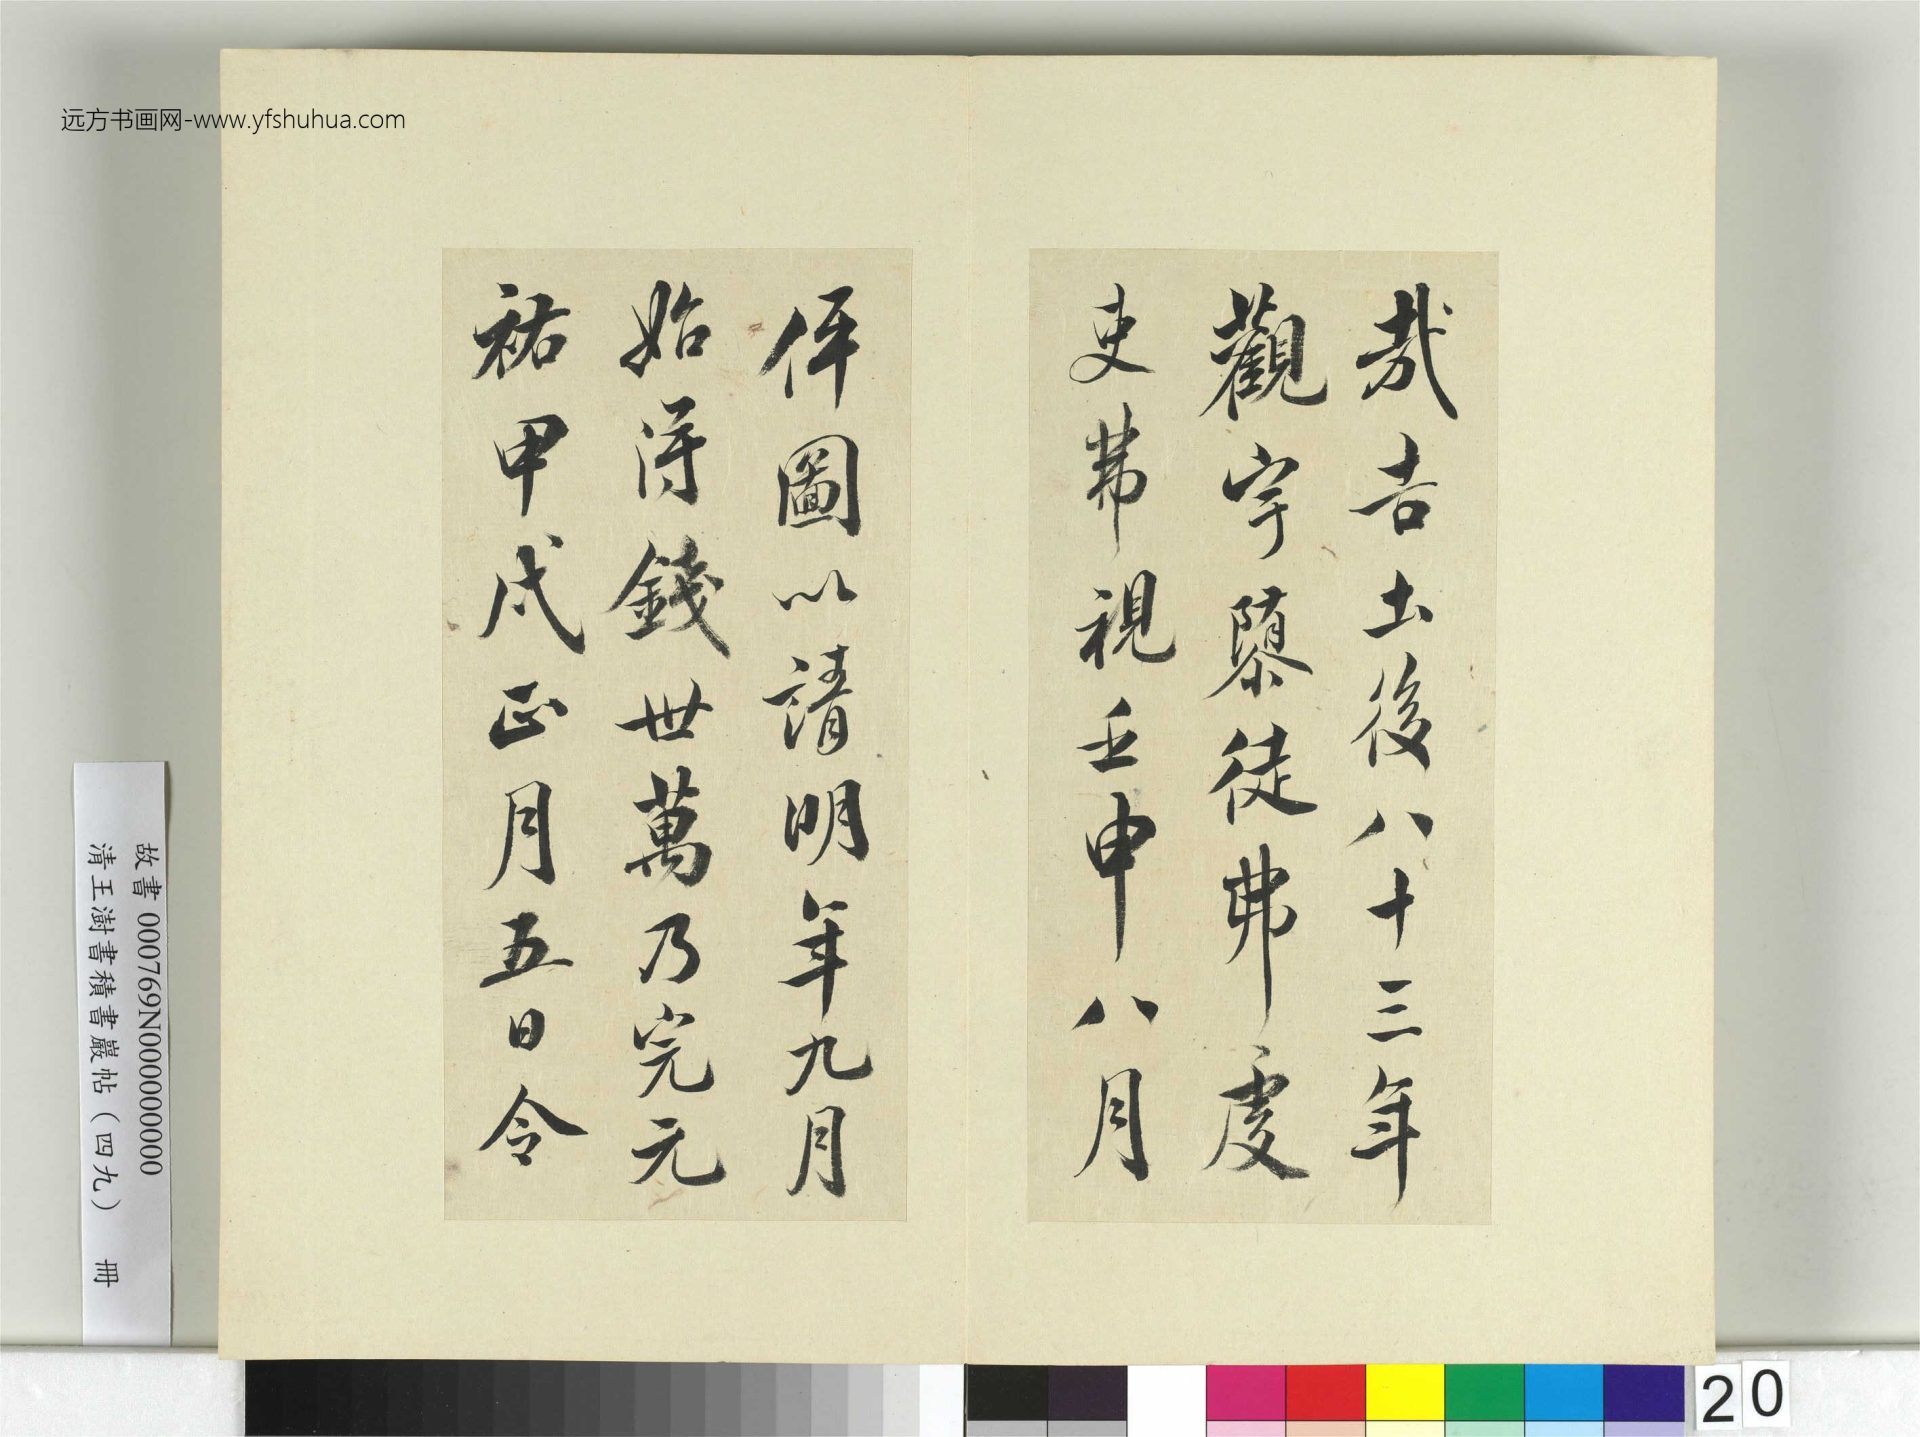 远方书画网-www.yfshuhua.com
哉吉土後八十三年
觀宇隳徒弗處
吏茀視壬申八月
伻圖以請明年九月
始得錢世萬乃完元
祐甲戌正月五日令
故書 000769N000000000
清王澍書積書巖帖（四九） 冊
20